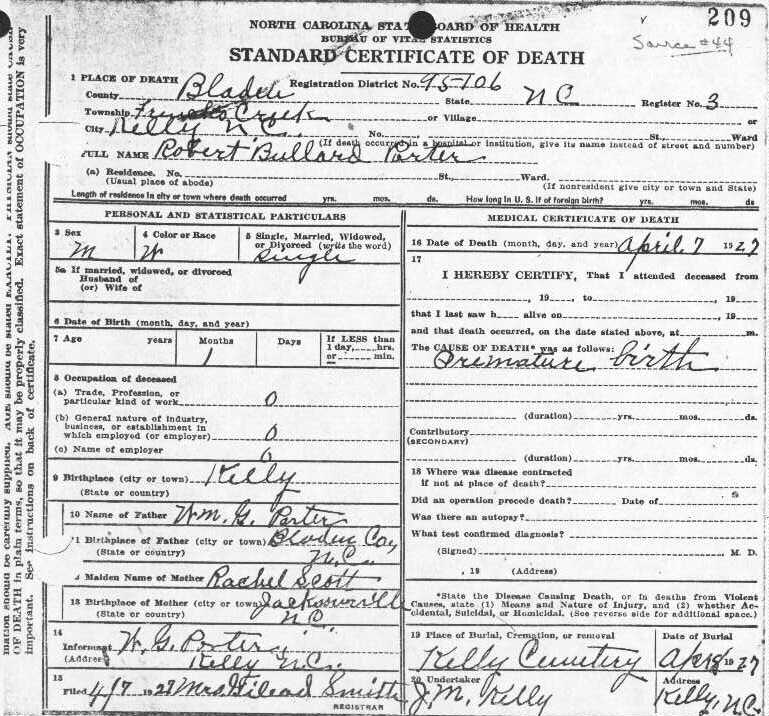 209
NORTH CAROLINA STATE BOARD OF HEALTH
BUREAU OF VITAL STATISTICS
Source #44
STANDARD CERTIFICATE OF DEATH
1 PLACE OF DEATH
Registration District No. 95-106
County Bladen State N C Register No. 3
Township Frenchs Creek or Village or
City Kelly N C. No. St., Ward
(If death occurred in a hospital or institution, give its name instead of street and number)
FULL NAME Robert Bullard Porter
(a) Residence. No. St., Ward.
(Usual place of abode) (If nonresident give city or town and State)
Length of residence in city or town where death occurred yrs. mos. ds. How long in U. S. if of foreign birth? yrs. mos. ds.
PERSONAL AND STATISTICAL PARTICULARS
3 Sex 4 Color or Race 5 Single, Married, Widowed,
or Divorced (write the word)
M W Single
5a If married, widowed, or divorced
Husband of
(or) Wife of
6 Date of Birth (month, day, and year)
7 Age years Months Days If LESS than
1 day, hrs.
or min.
1
8 Occupation of deceased
(a) Trade, Profession, or
particular kind of work 0
(b) General nature of industry,
business, or establishment in
which employed (or employer) 0
(c) Name of employer 0
9 Birthplace (city or town) Kelly
(State or country)
10 Name of Father W.M. G. Porter
1 Birthplace of Father (city or town) Bladen Coy
(State or country) N.C.
Maiden Name of Mother Rachel Scott
13 Birthplace of Mother (city or town) Jacksonville
(State or country) N.C.
14
Informant W. G. Porter
(Address) Kelly N.C.
15
Filed 4/7 1927 Mrs Gilead Smith
REGISTRAR
MEDICAL CERTIFICATE OF DEATH
16 Date of Death (month, day, and year) April 7 1927
17
I HEREBY CERTIFY, That I attended deceased from
, 19 , to , 19
that I last saw h alive on , 19
and that death occurred, on the date stated above, at m.
The CAUSE OF DEATH* was as follows:
Premature birth
(duration) yrs. mos. ds.
Contributory
(SECONDARY)
(duration) yrs. mos. ds.
18 Where was disease contracted
if not at place of death?
Did an operation precede death? Date of
Was there an autopsy?
What test confirmed diagnosis?
(Signed) M. D.
, 19 (Address)
*State the Disease Causing Death, or in deaths from Violent
Causes, state (1) Means and Nature of Injury, and (2) whether Ac-
cidental, Suicidal, or Homicidal. (See reverse side for additional space.)
19 Place of Burial, Cremation, or removal Date of Burial
Kelly Cemetery Apr 8 1927
20 Undertaker Address
J. M. Kelly Kelly, N.C.
mation should be carefully supplied. AGE should be stated EXACTLY. PHYSICIAN should state CAUSE
OF DEATH in plain terms, so that it may be properly classified. Exact statement of OCCUPATION is very
important. See instructions on back of certificate.